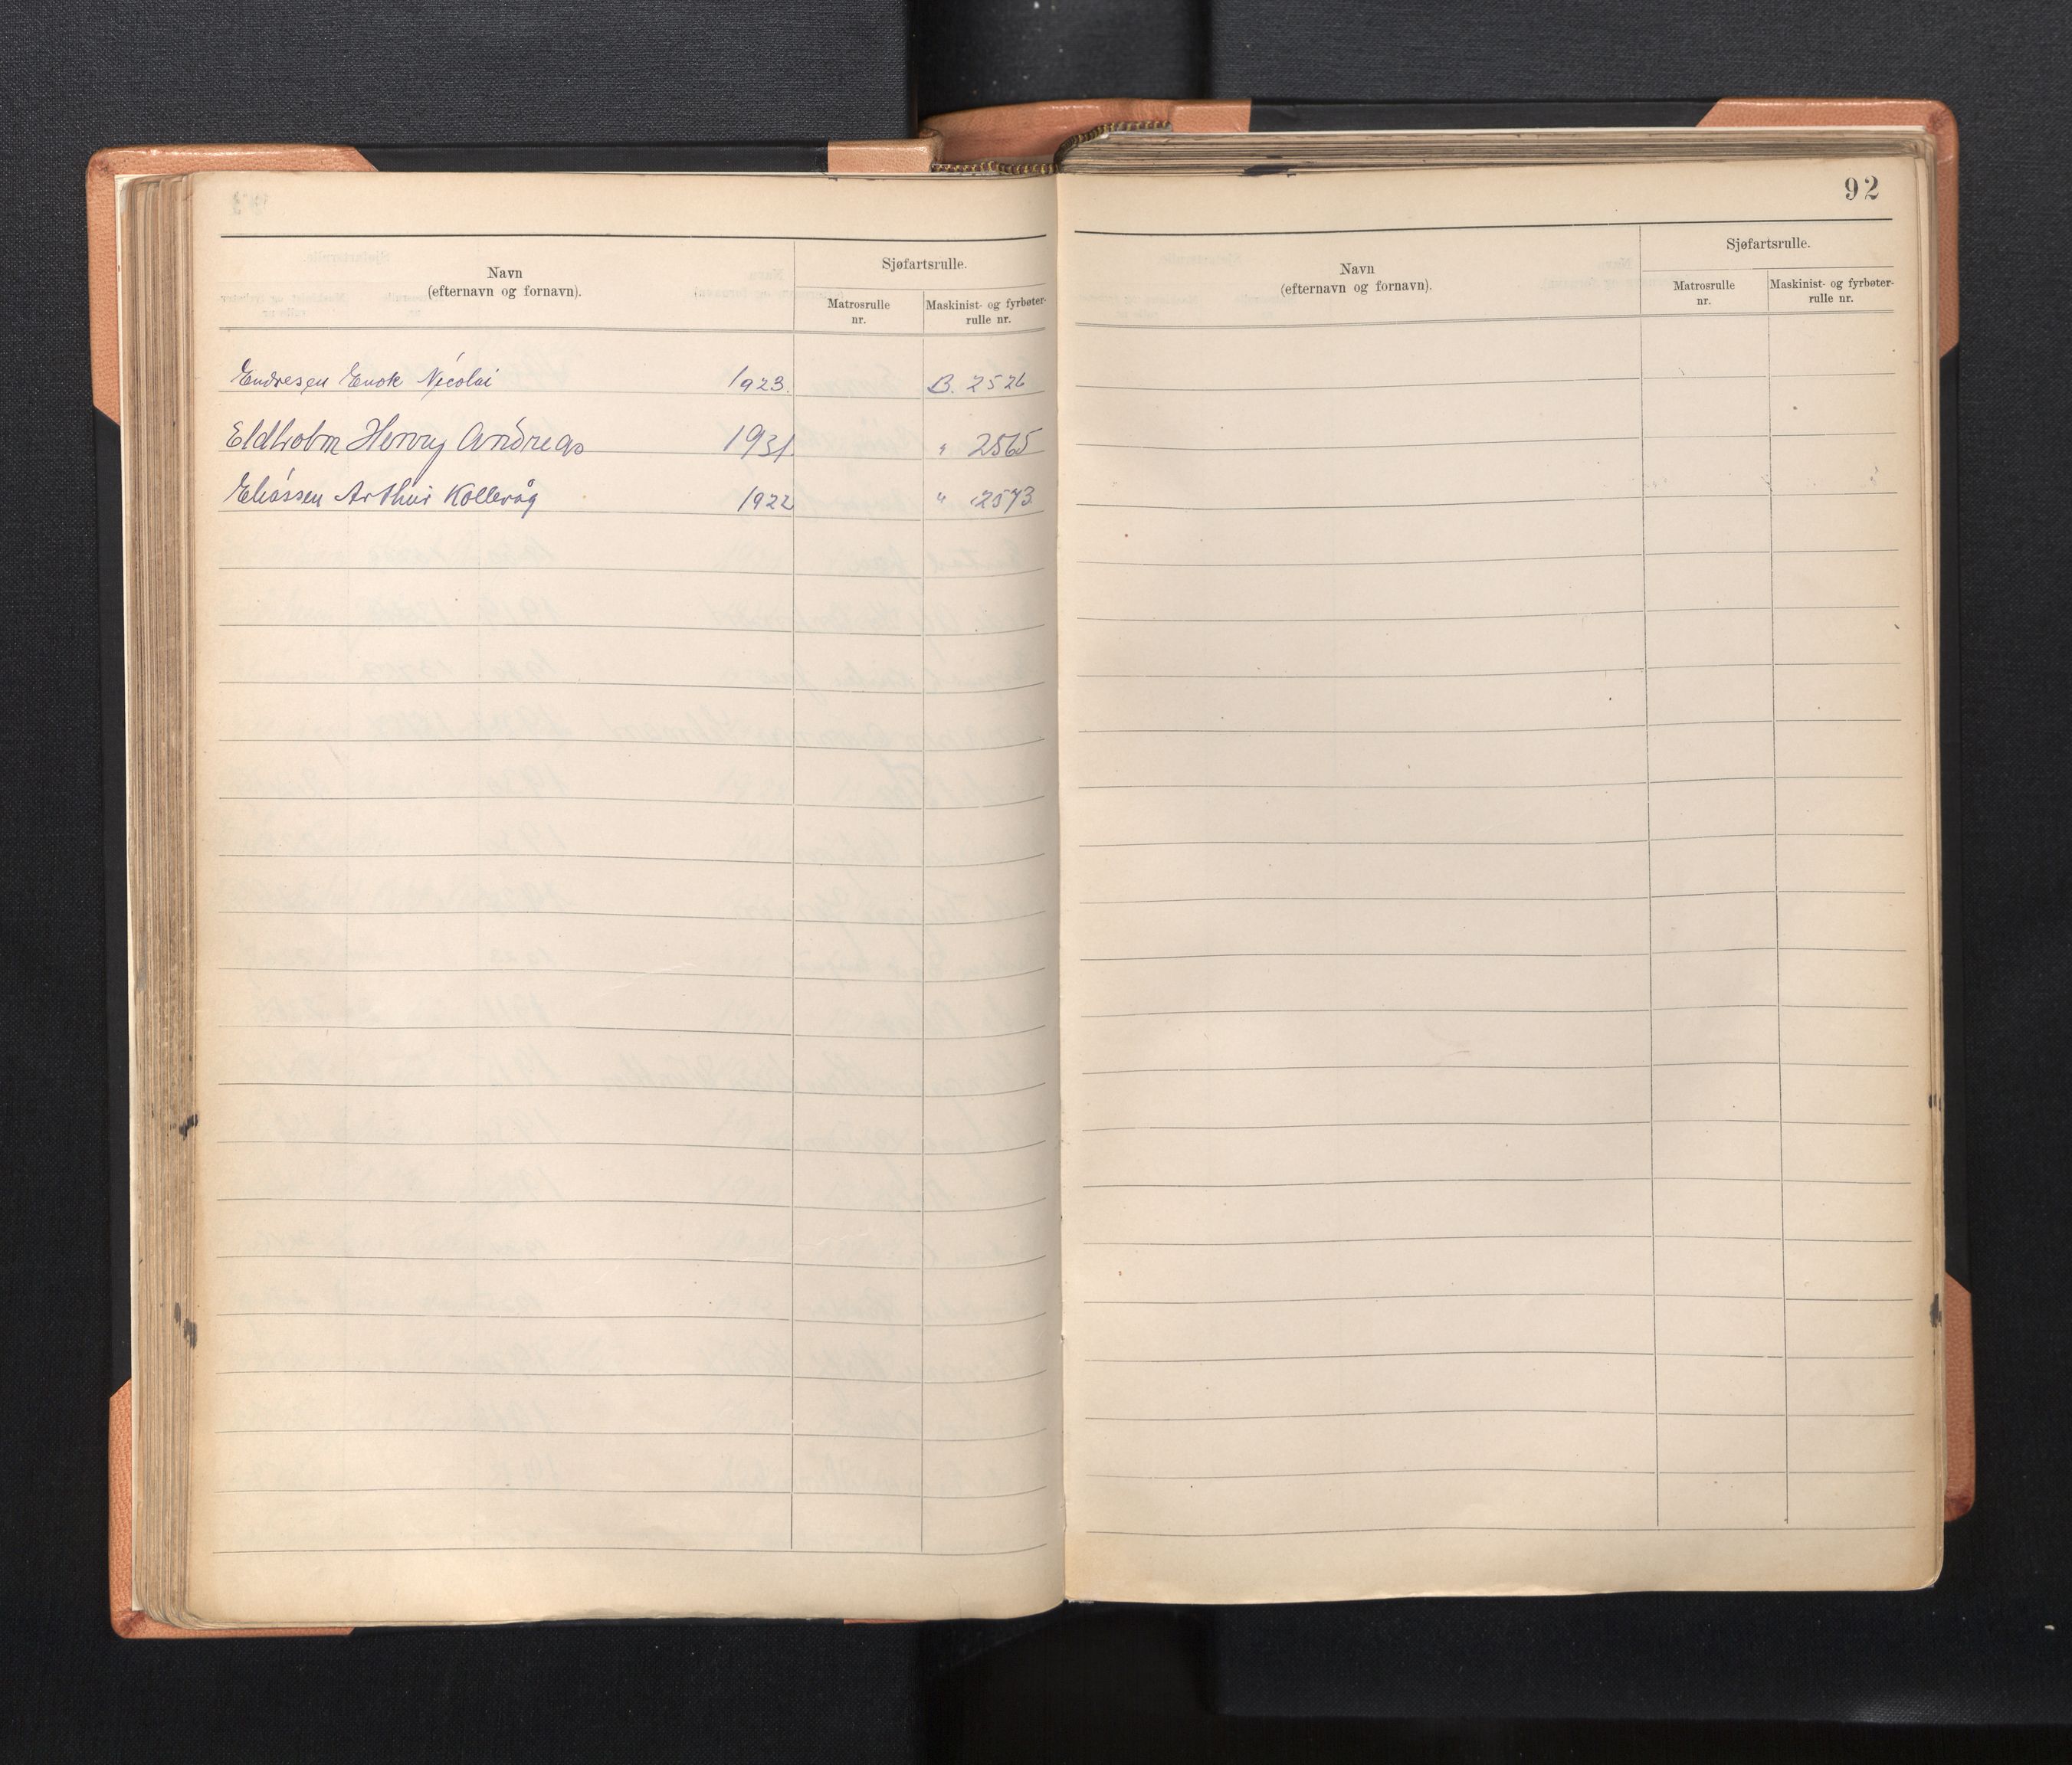 Navn
(efternavn og fornavn).
Sjøfartsrulle.
Matrosrulle
nr.
Maskinist- og fyrbøter-
rulle nr.
Endresen Enok Nicolai 1923. B. 2526
Eldholm Henry Andreas 1931 " 2565
Eliassen Arthur Kollevåg 1922 " 2573
92
Navn
(efternavn og fornavn).
Sjøfartsrulle.
Matrosrulle
nr.
Maskinist- og fyrbøter-
rulle nr.